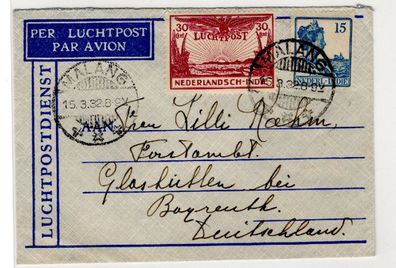 PER LUCHTPOST
PAR AVION
LUCHTPOSTDIENST
30 30
LUCHTPOST
NEDERLANDSCH-INDIË
15
NEDERL. INDIË
MALANG
15.3.32.8-9V
MALANG
15.3.32.8-9V
AAN
Frau Lilli Rehm.
Forstambt.
Glashütten bei
Bayreuth.
Deutschland.